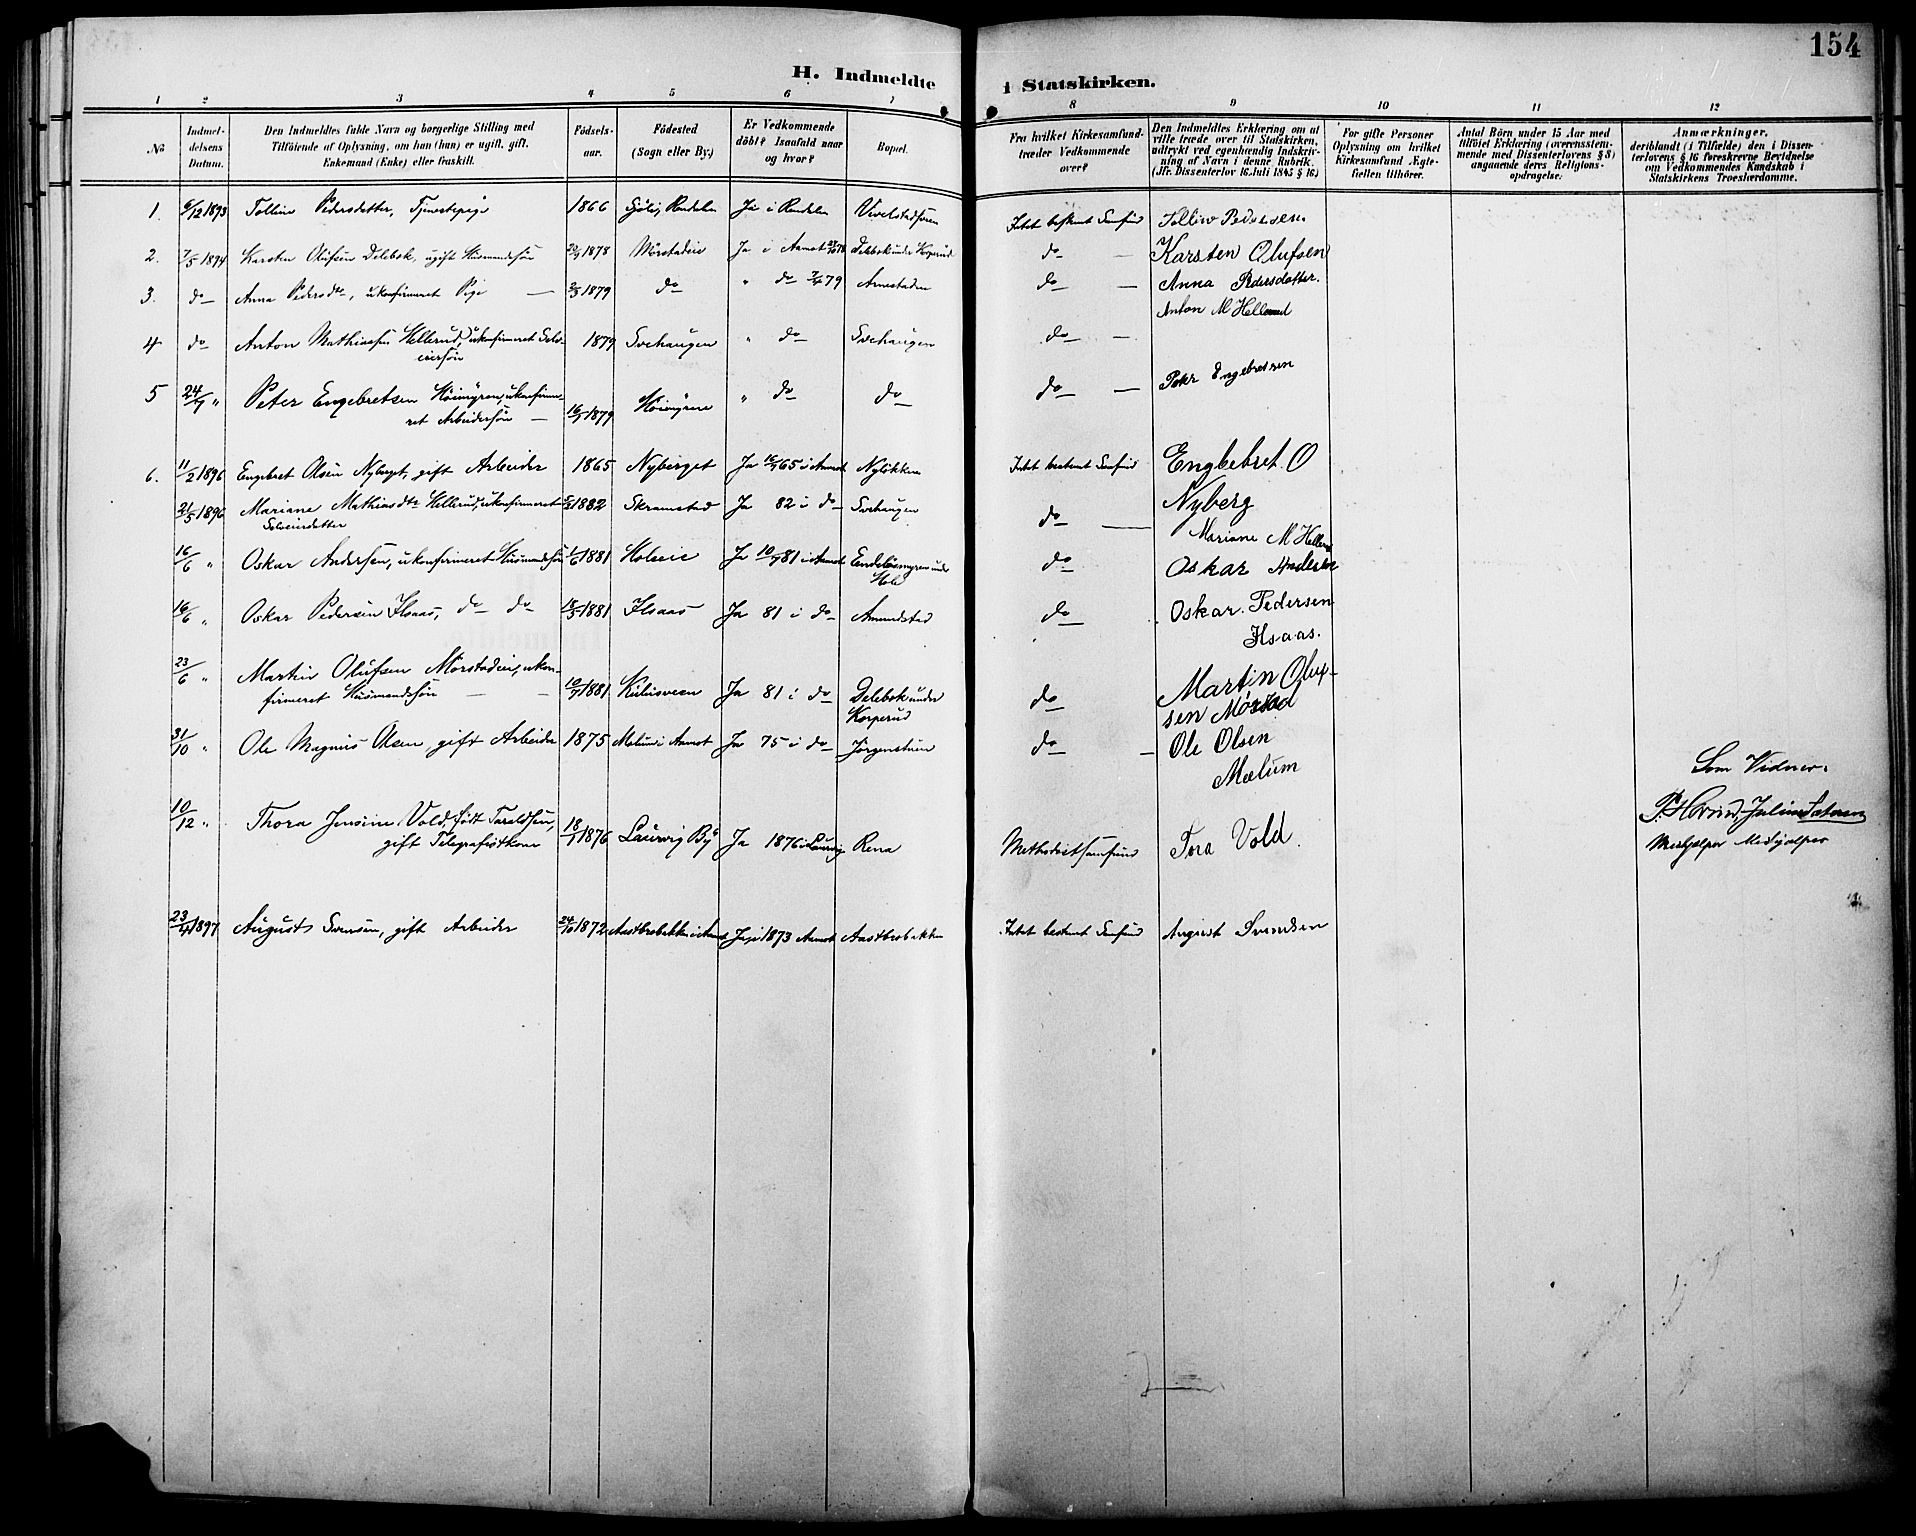 154
H. Indmeldte i Statskirken.
1 2 3 4 5 6 7 8 9 10 11 12
No
Indmeldelsens Datum.
Den Indmeldtes fulde Navn og borgerlige Stilling med
Tilföiende af Oplysning, om han (hun) er ugift, gift,
Enkemand (Enke) eller fraskilt.
Födsels-
aar.
Födested
(Sogn eller By.)
Er Vedkommende
döbt? Isaafald naar
og hvor?
Bopel.
Fra hvilket Kirkesamfund
træder Vedkommende
over?
Den Indmeldtes Erklæring om at
ville træde over til Statskirken,
udtrykt ved egenhændig Indskriv-
ning af Navn i denne Rubrik.
(Jfr. Dissenterlov 16 Juli 1845 § 16)
For gifte Personer
Oplysning om hvilket
Kirkesamfund Ægte-
fællen tilhörer.
Antal Börn under 15 Aar med
tilföiet Erklæring (overensstem-
mende med Dissenterlovens § 8)
angaaende deres Religions-
opdragelse.
Anmærkninger,
deriblandt (i Tilfælde) den i Dissen-
terlovens § 16 foreskrevne Bevidnelse
om Vedkommendes Kundskab i
Statskirkens Troeslærdomme.
1. 6/12 1893 Tolline Pedersdatter, Tjenestepige 1866 Sjöli, Rendalen Ja i Rendalen Intet bestemt Samfund
2. 7/5 1894 Karsten Olufsen Delebek, ugift Husmandssön 20/9 1878 Mörstadeie Ja i Aamot Delebek under Korperud do — Karsten Olufsen
3. do Anna Pedersdtr, ukonfirmeret Pige — 2/3 1879 do " do 2/4 79 Arnestaden do — Anna Pedersdatter.
4 do Anton Mathiassen Hellerud, ukonfirmeret Selv-
eiersön 1879 Svehaugen " do Svehaugen do — Anton M Hellerud
5 24/7 " Peter Engebretsen Höimyren, ukonfirme-
ret Arbeidersön — 16/7 1879 Höimyrene " do do do — Peter Engebretsen
6. 11/2 1896 Engebret Olsen Nyberget, gift Arbeider 1865 Nyberget Ja 16/7 65 i Aamot Nylökken Intet bestemt Samfund Englebret. O
Nyberg
21/5 1896 Mariane Mathiasdtr Hellerud, ukonfirmeret
Selveierdatter 1882 Skramstad Ja 82 i do Svehaugen do — Mariane M Hellerud
16/6 " Oskar Andersen, ukonfirmeret Husmandssön 1/6 1881 Holseie Ja 10/7 81 i Aamot Endelösmyren under
Hole do Oskar Andersen
16/6 " Oskar Pedersen Ilsaas, do do 18/5 1881 Ilsaas Ja 81 i do Amundstad do Oskar. Pedersen
Ilsaas.
23/6 " Martin Olufsen Mörstadeie, ukon-
firmeret Husmandssön — 10/7 1881 Ja 81 i do Delebek under
Korperud do Martin Oluf-
sen Mørstad
31/10 " Ole Magnus Olsen, gift Arbeider 1875 Melum i Aamot Ja 75 i do Jörgenstuen do — Ole Olsen
Mælum
10/12 " Thora Jensine Vold, født Taraldsen,
gift Telegrafistkone 18/7 1876 Laurvig By Ja 1876 i Laurvig Rena Methodistsamfund Tora Vold.
Som Vidner.
Medhjælper Medhjælper
23/4 1897 August Svensen, gift Arbeider 24/10 1872 Aastebrobakken i Aamot Ja, i 1873 Aamot Aastebrobakken Intet bestemt Samfund August Svendsen